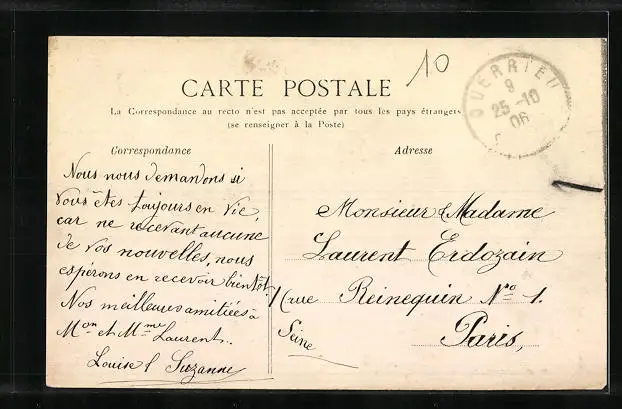 10
CARTE POSTALE
La Correspondance au recto n'est pas acceptée par tous les pays étrangers
(se renseigner à la Poste)
QUERRIEU
9
25-10
06
S
Correspondance
Nous nous demandons si
vous êtes toujours en vie,
car ne recevant aucune
de vos nouvelles, nous
espérons en recevoir bientôt.
Nos meilleures amitiées à
Mon et Mme Laurent..
Louise & Suzanne
Adresse
Monsieur & Madame
Laurent Erdozain
rue Reinequin No 1.
Seine Paris,